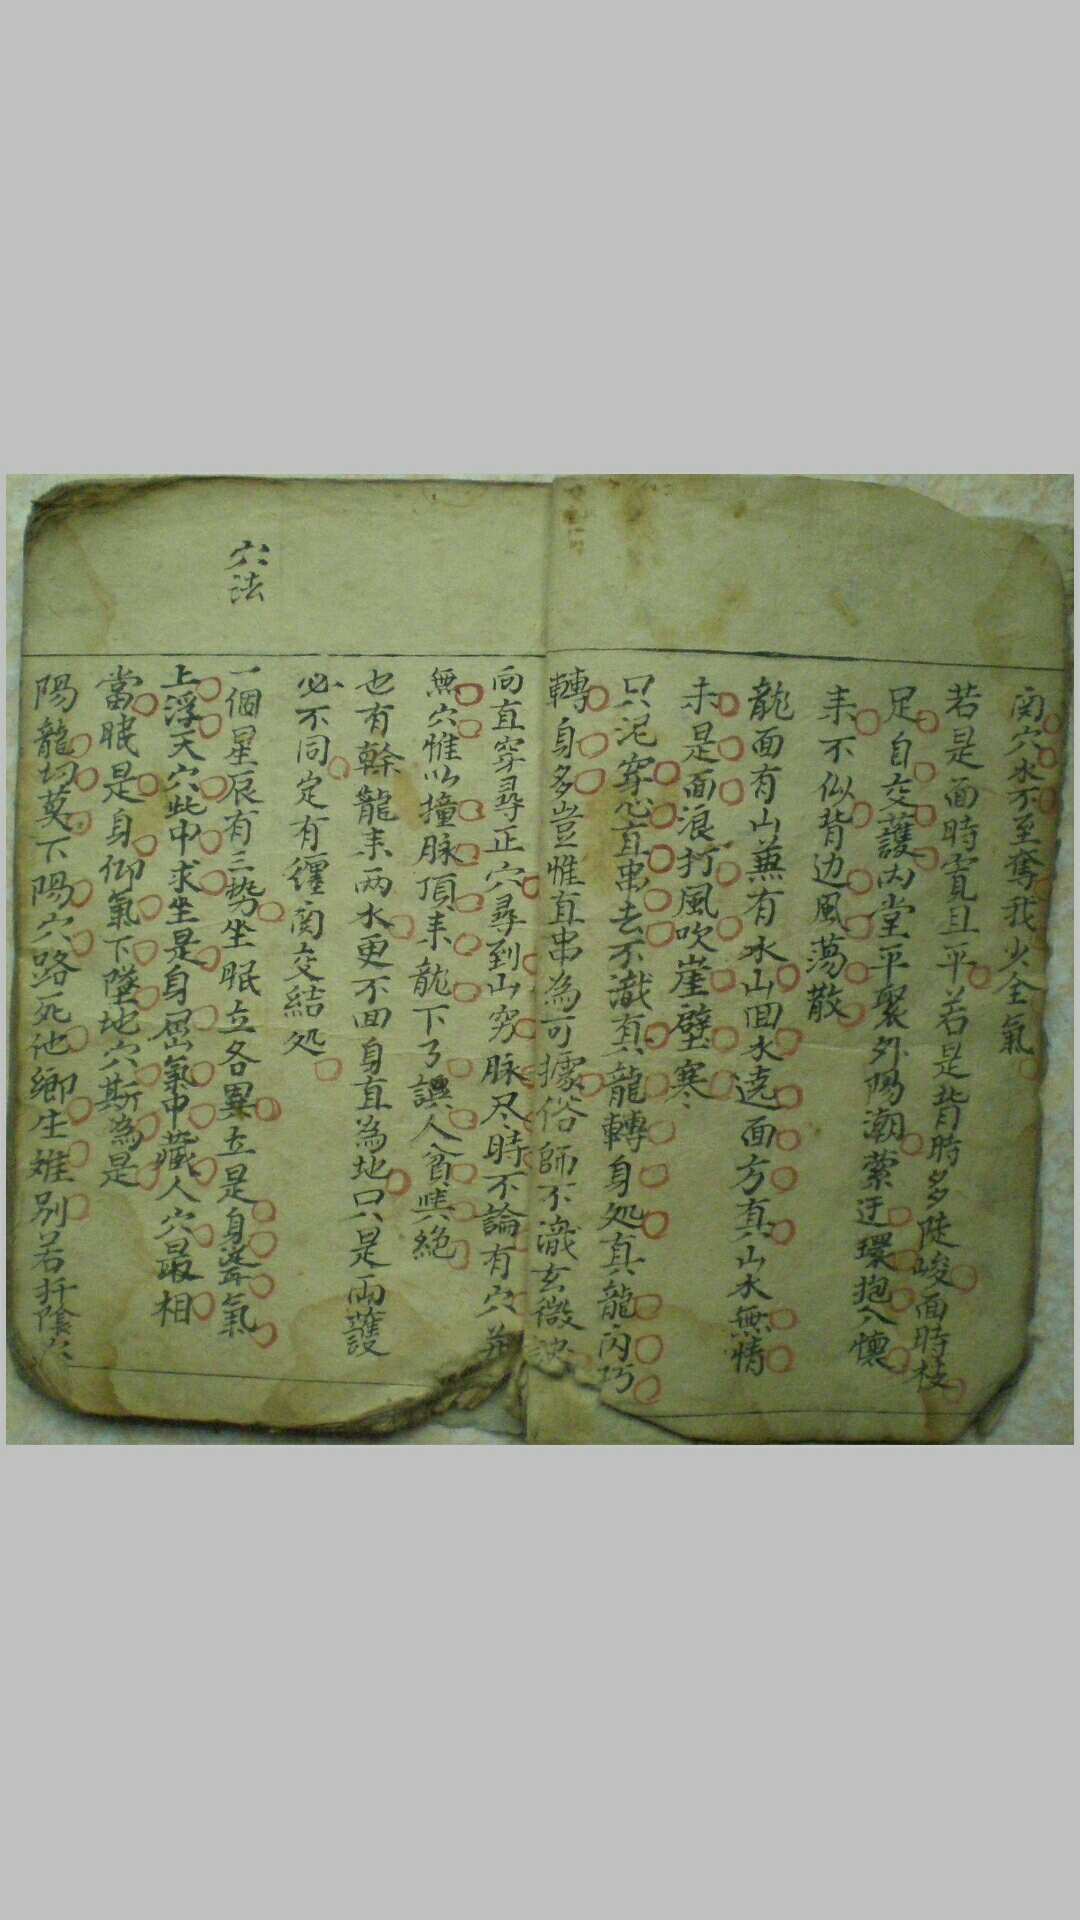 関穴水不至奪我火全氣
若是面時寬且平若是背時多陡峻面時枝
足自交護内堂平聚外陽潮萦迂環抱入懷
来不似背边風蕩散
龍面有山兼有水山回水遶面方真山水無情
未是面浪打風吹崖壁寒
只泥穿心直串去不識真龍轉身処真龍闪巧
轉身多豈惟直串為可據俗師不識玄微訣
向直穿尋正穴尋到山窮脉尽時不論有穴并
無穴惟以撞脉頂来龍下了誤人貧與絕
也有幹龍来两水更不回身直為地只是兩護
必不同定有纏関交結処
穴法
一個星辰有三势坐眠立各異立是身聳氣
上浮天穴此中求坐是身屈氣中藏人穴最相
當眠是身仰氣下墜地穴斯為是
陽龍切莫下陽穴路死他鄉生难别若扦陰穴